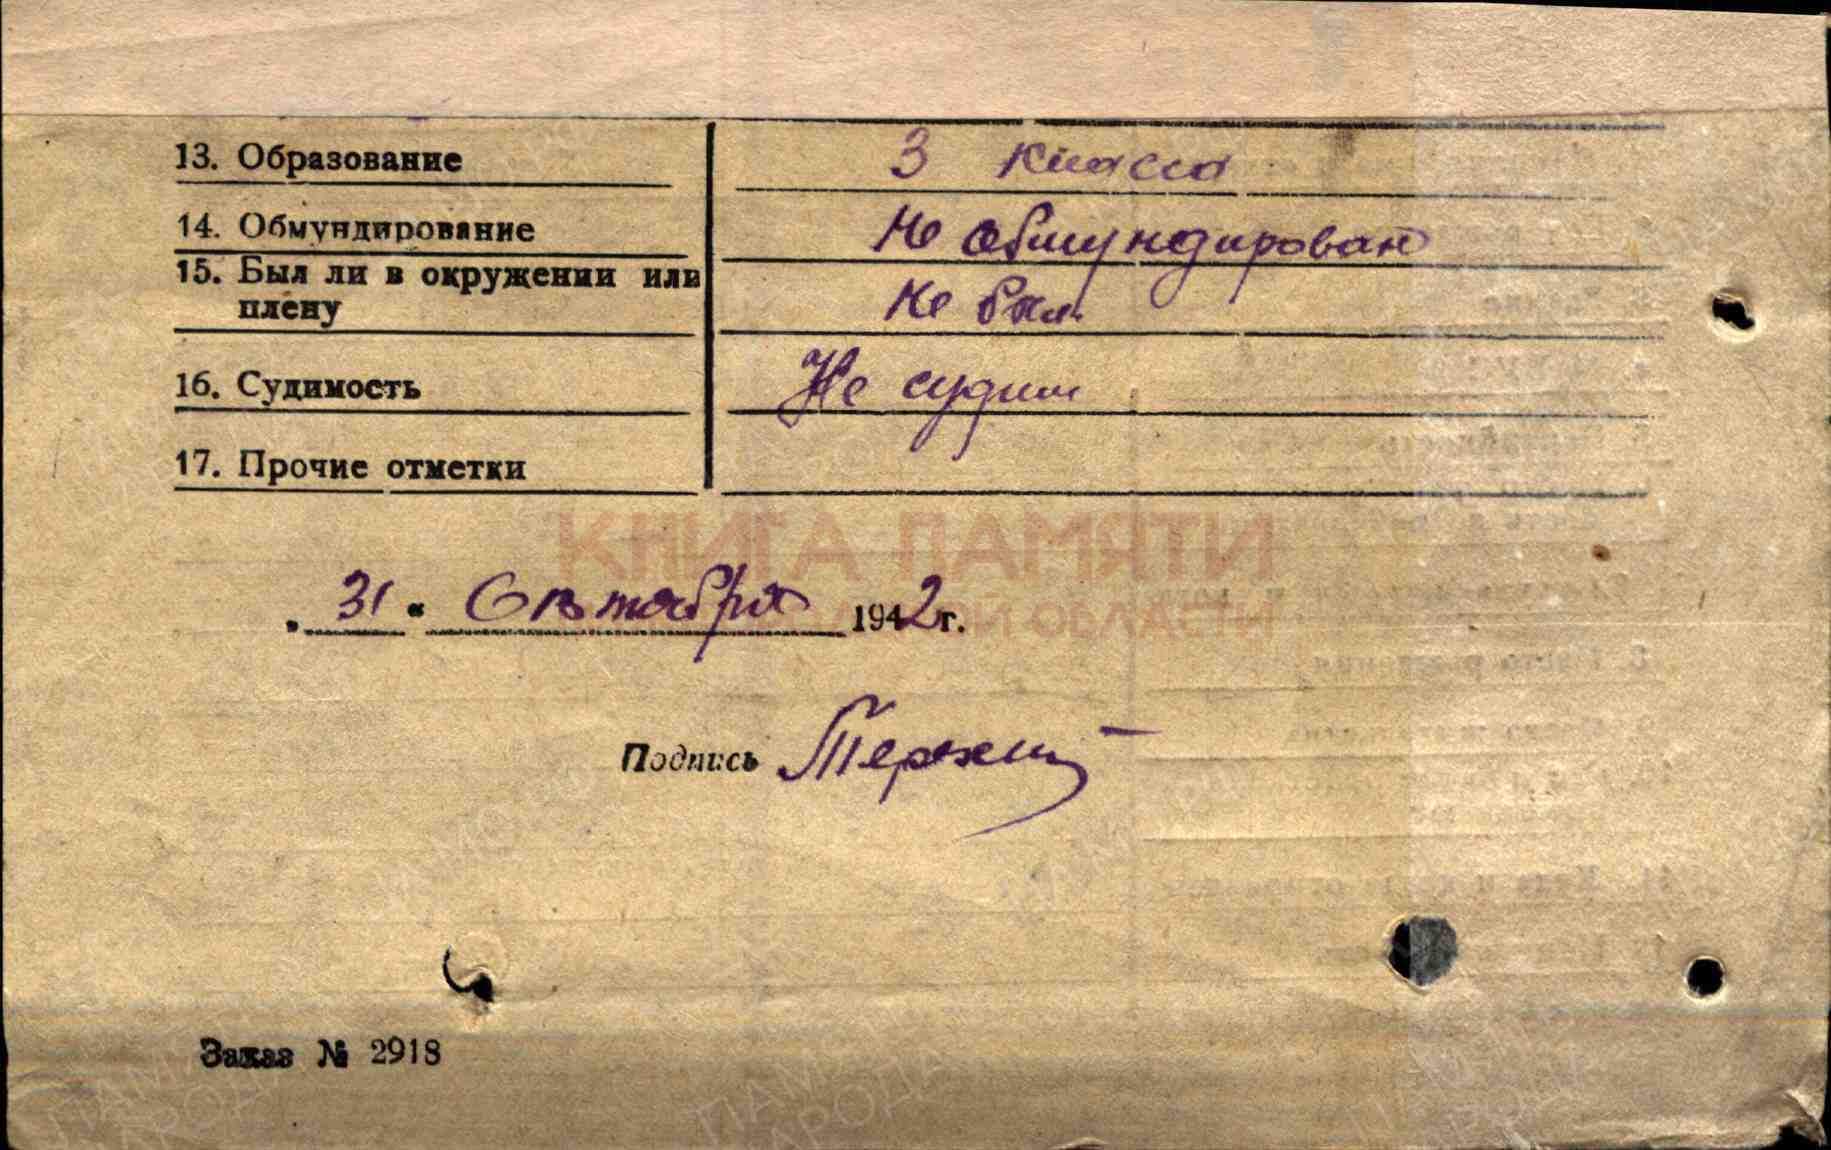 13. Образование 3 класса
14. Обмундирование Не обмундирован
15. Был ли в окружении или плену Не был.
16. Судимость Не судим
17. Прочие отметки
КНИГА ПАМЯТИ
ОБЛАСТИ
„ 31 “ Октября 1942 г.
Подпись
Заказ № 2918